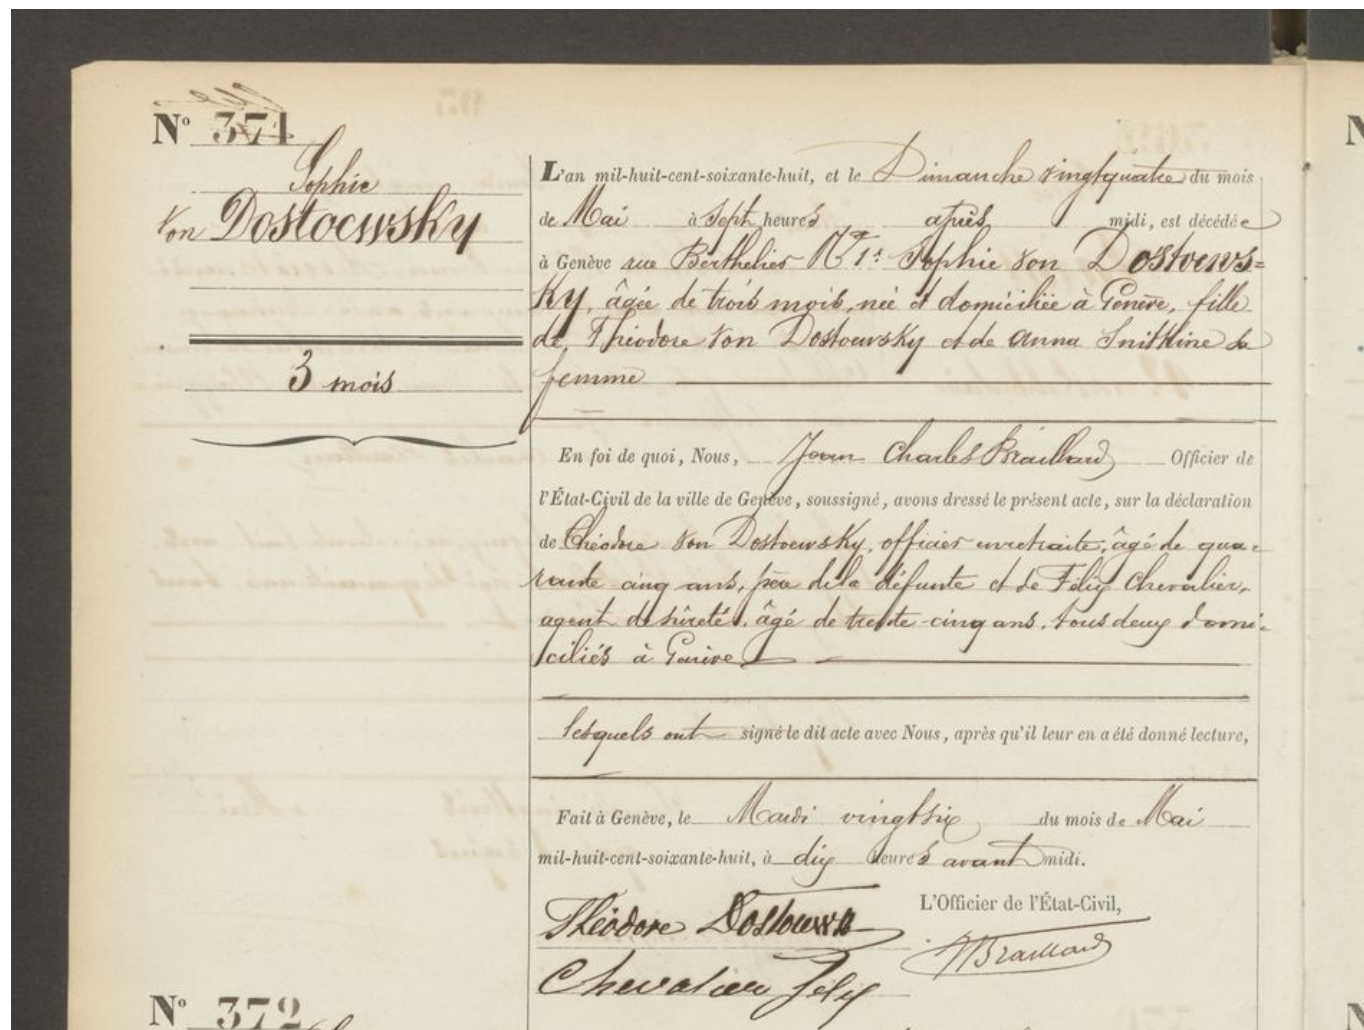 N° 371
Sophie
von Dostoewsky
3 mois
L'an mil-huit-cent-soixante-huit, et le Dimanche vingtquatre du mois
de Mai à sept heures après midi, est décédée
à Genève rue Berthelier N° 1: Sophie von Dostoews=
ky, âgée de trois mois, née et domiciliée à Genève, fille
de Théodore von Dostoewsky et de Anna Snitkine sa
femme
En foi de quoi, Nous, Jean Charles Braillard Officier de
l'État-Civil de la ville de Genève, soussigné, avons dressé le présent acte, sur la déclaration
de Théodore von Dostoewsky, officier en retraite, âgé de qua=
rante cinq ans, père de la défunte et de Félix Chevalier,
agent de sûreté, âgé de trente-cinq ans, tous deux domi=
ciliés à Genève
lesquels ont signé le dit acte avec Nous, après qu'il leur en a été donné lecture,
Fait à Genève, le Mardi vingtsix du mois de Mai
mil-huit-cent-soixante-huit, à dix heures avant midi.
L'Officier de l'État-Civil,
Théodore
JBraillard
Chevalier Félix
N° 372